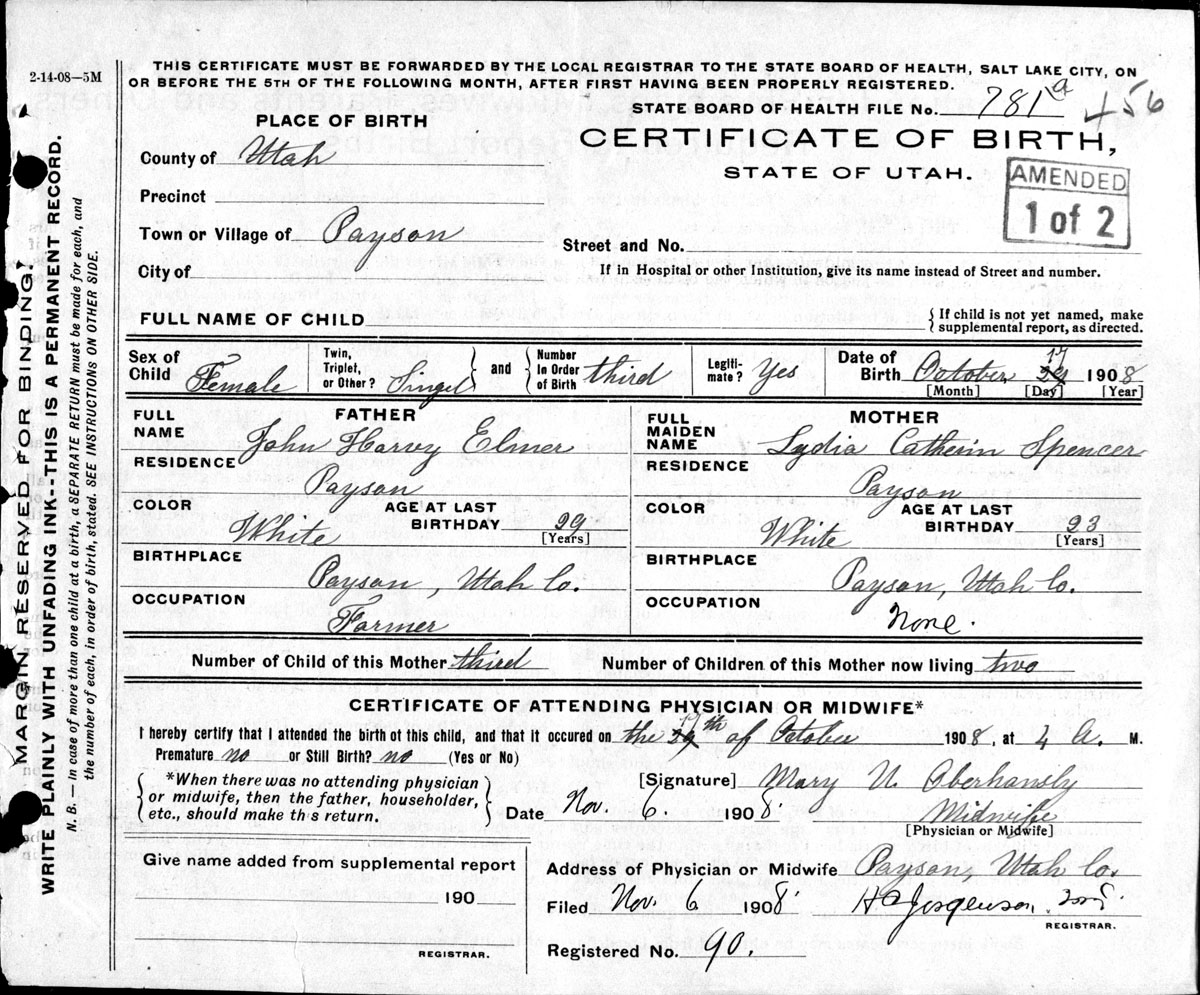 2-14-08—5M
THIS CERTIFICATE MUST BE FORWARDED BY THE LOCAL REGISTRAR TO THE STATE BOARD OF HEALTH, SALT LAKE CITY, ON
OR BEFORE THE 5TH OF THE FOLLOWING MONTH, AFTER FIRST HAVING BEEN PROPERLY REGISTERED.
STATE BOARD OF HEALTH FILE No. 781 a 456
PLACE OF BIRTH
CERTIFICATE OF BIRTH,
STATE OF UTAH.
AMENDED
1 of 2
County of Utah
Precinct
Town or Village of Payson
Street and No.
City of
If in Hospital or other Institution, give its name instead of Street and number.
FULL NAME OF CHILD
{ If child is not yet named, make
supplemental report, as directed.
Sex of Child Female
Twin, Triplet, or Other? Singel } and { Number In Order of Birth third
Legiti-mate? Yes
Date of Birth October 17 29 1908
[Month] [Day] [Year]
FATHER
FULL NAME John Harvy Elmer
RESIDENCE Payson
COLOR White
AGE AT LAST BIRTHDAY 29
[Years]
BIRTHPLACE Payson, Utah Co.
OCCUPATION Farmer
MOTHER
FULL MAIDEN NAME Lydia Catherin Spencer
RESIDENCE Payson
COLOR White
AGE AT LAST BIRTHDAY 23
[Years]
BIRTHPLACE Payson, Utah Co.
OCCUPATION None.
Number of Child of this Mother third
Number of Children of this Mother now living two
CERTIFICATE OF ATTENDING PHYSICIAN OR MIDWIFE*
I hereby certify that I attended the birth of this child, and that it occured on the 17 th of October 1908, at 4 A. M.
Premature no or Still Birth? no (Yes or No)
{ *When there was no attending physician
or midwife, then the father, householder,
etc., should make this return. }
[Signature] Mary U. Oberhansly
Date Nov. 6. 1908
Midwife
[Physician or Midwife]
Give name added from supplemental report
190
REGISTRAR.
Address of Physician or Midwife Payson, Utah Co.
Filed Nov. 6 1908 Jorgenson
REGISTRAR.
Registered No. 90.
MARGIN RESERVED FOR BINDING.
WRITE PLAINLY WITH UNFADING INK--THIS IS A PERMANENT RECORD.
N. B. — In case of more than one child at a birth, a SEPARATE RETURN must be made for each, and
the number of each, in order of birth, stated. SEE INSTRUCTIONS ON OTHER SIDE.